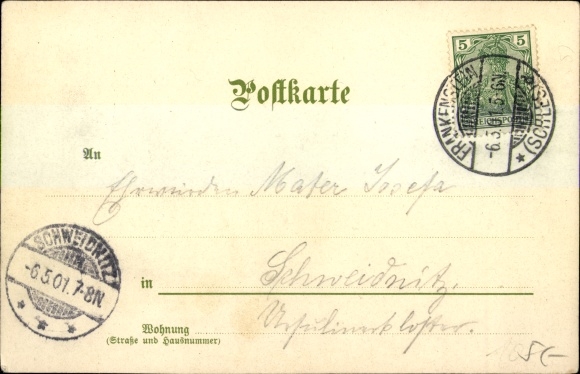 5 5
Postkarte
FRANKENSTEIN
-6.5.01.5-6N.
(SCHLES)
An
Ehrwürden Mater Josefa
SCHWEIDNITZ
-6.5.01.7-8N.
in Schweidnitz.
Wohnung Ursulinenkloster.
(Straße und Hausnummer)